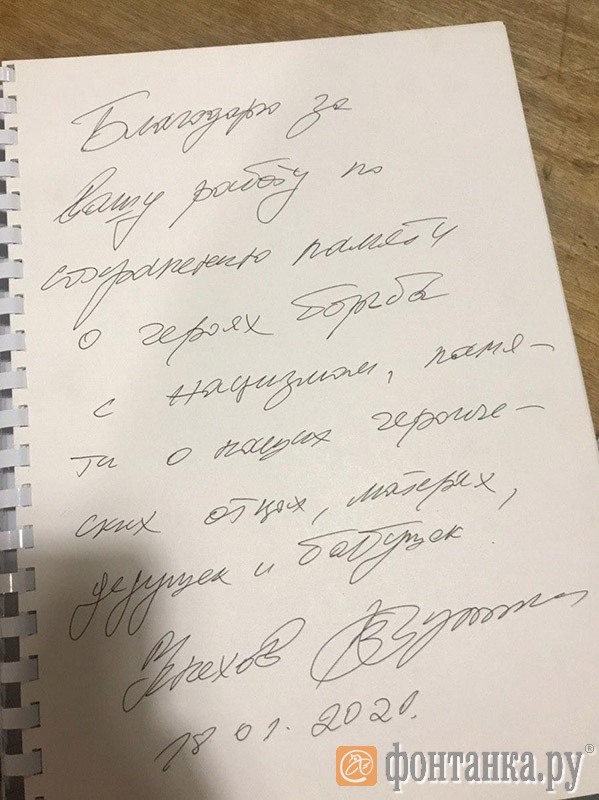 Благодарю за
Вашу работу по
сохранению памяти
о героях борьбы
с нацизмом, памя-
ти о наших героиче-
ских отцах, матерях,
дедушек и бабушек.
Успехов В Путин
18.01.2020.
фонтанка.ру®